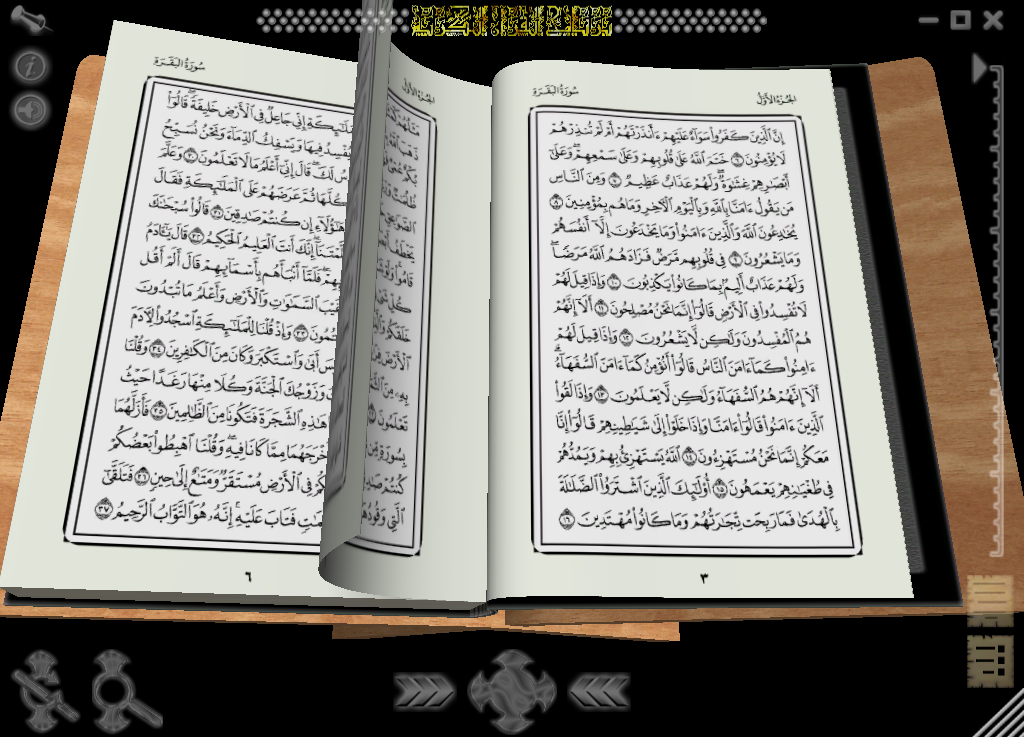 سُورَةُ البَقَرَةِ
الجُزْءُ الأَوَّلُ
إِنَّ ٱلَّذِينَ كَفَرُوا۟ سَوَآءٌ عَلَيْهِمْ ءَأَنذَرْتَهُمْ أَمْ لَمْ تُنذِرْهُمْ
لَا يُؤْمِنُونَ ٦ خَتَمَ ٱللَّهُ عَلَىٰ قُلُوبِهِمْ وَعَلَىٰ سَمْعِهِمْ ۖ وَعَلَىٰٓ
أَبْصَـٰرِهِمْ غِشَـٰوَةٌ ۖ وَلَهُمْ عَذَابٌ عَظِيمٌ ٧ وَمِنَ ٱلنَّاسِ
مَن يَقُولُ ءَامَنَّا بِٱللَّهِ وَبِٱلْيَوْمِ ٱلْـَٔاخِرِ وَمَا هُم بِمُؤْمِنِينَ ٨
يُخَـٰدِعُونَ ٱللَّهَ وَٱلَّذِينَ ءَامَنُوا۟ وَمَا يَخْدَعُونَ إِلَّآ أَنفُسَهُمْ
وَمَا يَشْعُرُونَ ٩ فِى قُلُوبِهِم مَّرَضٌ فَزَادَهُمُ ٱللَّهُ مَرَضًا ۖ
وَلَهُمْ عَذَابٌ أَلِيمٌۢ بِمَا كَانُوا۟ يَكْذِبُونَ ١٠ وَإِذَا قِيلَ لَهُمْ
لَا تُفْسِدُوا۟ فِى ٱلْأَرْضِ قَالُوٓا۟ إِنَّمَا نَحْنُ مُصْلِحُونَ ١١ أَلَآ إِنَّهُمْ
هُمُ ٱلْمُفْسِدُونَ وَلَـٰكِن لَّا يَشْعُرُونَ ١٢ وَإِذَا قِيلَ لَهُمْ
ءَامِنُوا۟ كَمَآ ءَامَنَ ٱلنَّاسُ قَالُوٓا۟ أَنُؤْمِنُ كَمَآ ءَامَنَ ٱلسُّفَهَآءُ ۗ
أَلَآ إِنَّهُمْ هُمُ ٱلسُّفَهَآءُ وَلَـٰكِن لَّا يَعْلَمُونَ ١٣ وَإِذَا لَقُوا۟
ٱلَّذِينَ ءَامَنُوا۟ قَالُوٓا۟ ءَامَنَّا وَإِذَا خَلَوْا۟ إِلَىٰ شَيَـٰطِينِهِمْ قَالُوٓا۟ إِنَّا
مَعَكُمْ إِنَّمَا نَحْنُ مُسْتَهْزِءُونَ ١٤ ٱللَّهُ يَسْتَهْزِئُ بِهِمْ وَيَمُدُّهُمْ
فِى طُغْيَـٰنِهِمْ يَعْمَهُونَ ١٥ أُو۟لَـٰٓئِكَ ٱلَّذِينَ ٱشْتَرَوُا۟ ٱلضَّلَـٰلَةَ
بِٱلْهُدَىٰ فَمَا رَبِحَت تِّجَـٰرَتُهُمْ وَمَا كَانُوا۟ مُهْتَدِينَ ١٦
٣
الجُزْءُ الأَوَّلُ
مَثَلُهُمْ
ذَهَبَ
بُكْمٌ عُمْىٌ
ظُلُمَـٰتٌ
يَخْطَفُ
قَامُوا۟ ۚ وَلَوْ
خَلَقَكُمْ
ٱلْأَرْضَ
بِهِۦ مِنَ
تَعْلَمُونَ
بِسُورَةٍ مِّن
كُنتُمْ
ٱلَّتِى وَقُودُهَا
سُورَةُ البَقَرَةِ
إِنِّى جَاعِلٌ فِى ٱلْأَرْضِ خَلِيفَةً ۖ قَالُوٓا۟
يُفْسِدُ فِيهَا وَيَسْفِكُ ٱلدِّمَآءَ وَنَحْنُ نُسَبِّحُ
لَكَ ۖ قَالَ إِنِّىٓ أَعْلَمُ مَا لَا تَعْلَمُونَ ٣٠ وَعَلَّمَ
كُلَّهَا ثُمَّ عَرَضَهُمْ عَلَى ٱلْمَلَـٰٓئِكَةِ فَقَالَ
هَـٰٓؤُلَآءِ إِن كُنتُمْ صَـٰدِقِينَ ٣١ قَالُوا۟ سُبْحَـٰنَكَ
إِنَّكَ أَنتَ ٱلْعَلِيمُ ٱلْحَكِيمُ ٣٢ قَالَ يَـٰٓـَٔادَمُ
فَلَمَّآ أَنۢبَأَهُم بِأَسْمَآئِهِمْ قَالَ أَلَمْ أَقُل
غَيْبَ ٱلسَّمَـٰوَٰتِ وَٱلْأَرْضِ وَأَعْلَمُ مَا تُبْدُونَ
٣٣ وَإِذْ قُلْنَا لِلْمَلَـٰٓئِكَةِ ٱسْجُدُوا۟ لِـَٔادَمَ
أَبَىٰ وَٱسْتَكْبَرَ وَكَانَ مِنَ ٱلْكَـٰفِرِينَ ٣٤ وَقُلْنَا
وَزَوْجُكَ ٱلْجَنَّةَ وَكُلَا مِنْهَا رَغَدًا حَيْثُ
هَـٰذِهِ ٱلشَّجَرَةَ فَتَكُونَا مِنَ ٱلظَّـٰلِمِينَ ٣٥ فَأَزَلَّهُمَا
مِمَّا كَانَا فِيهِ ۖ وَقُلْنَا ٱهْبِطُوا۟ بَعْضُكُمْ
فِى ٱلْأَرْضِ مُسْتَقَرٌّ وَمَتَـٰعٌ إِلَىٰ حِينٍ ٣٦ فَتَلَقَّىٰٓ
فَتَابَ عَلَيْهِ ۚ إِنَّهُۥ هُوَ ٱلتَّوَّابُ ٱلرَّحِيمُ ٣٧
٦